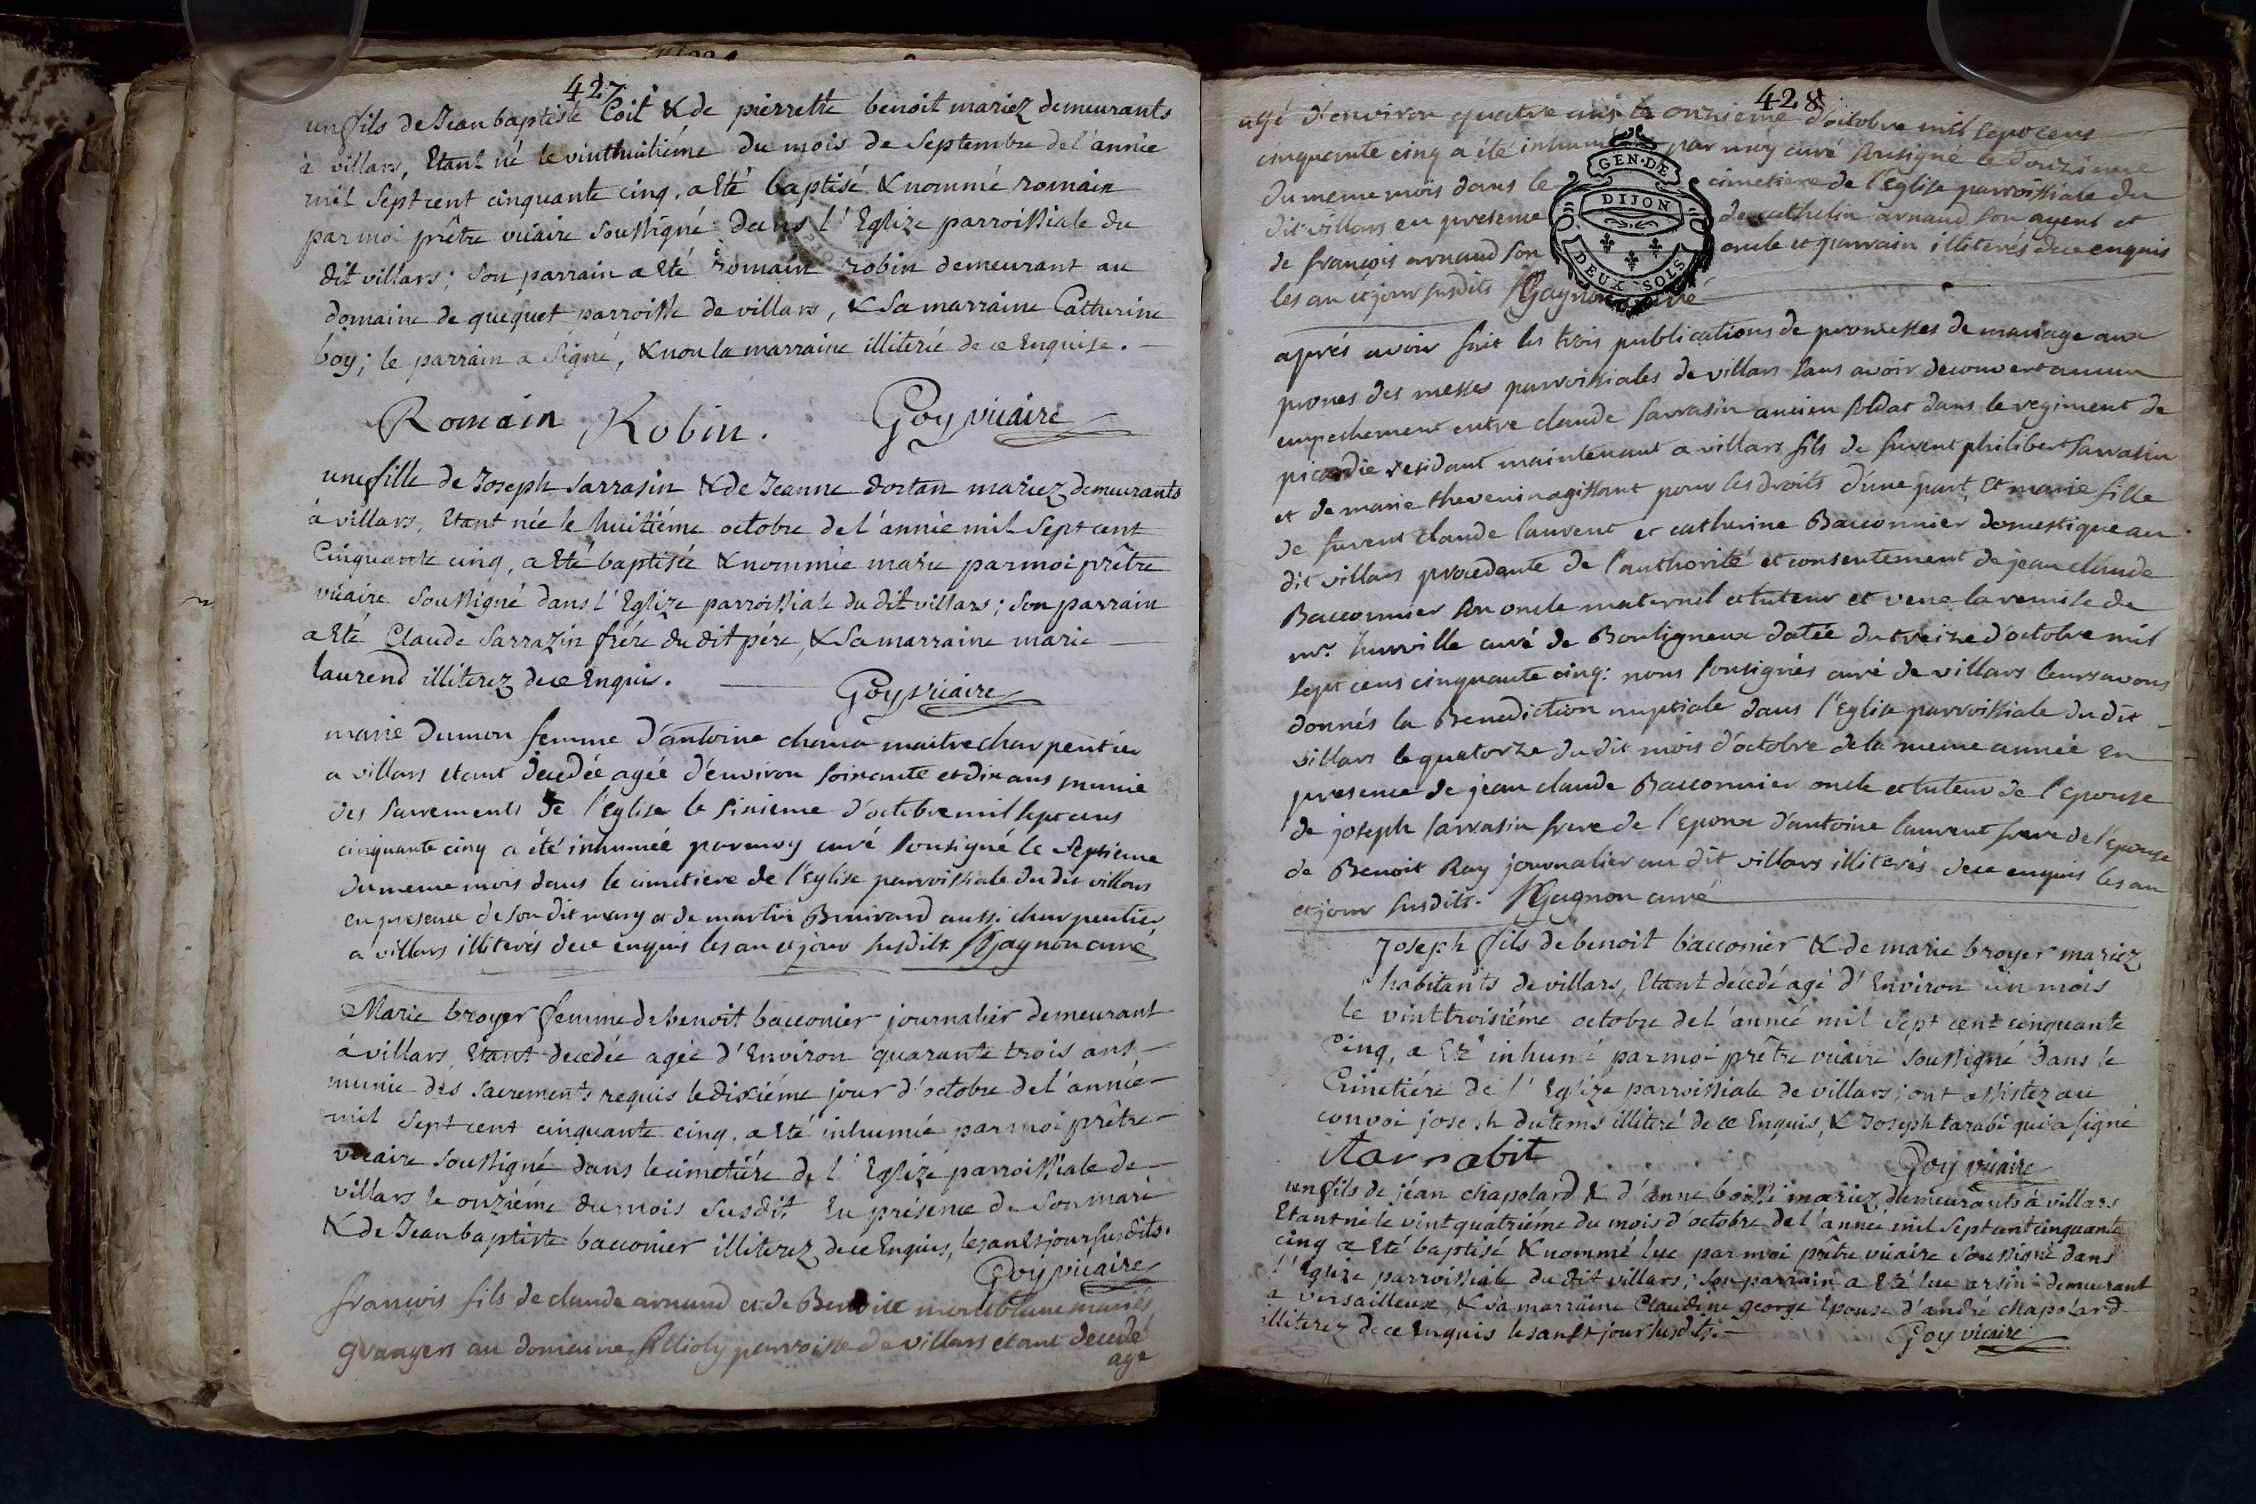 427
un fils de Jean baptiste Coit & de pierrette benoit mariez demeurants
à villars, Etant né le vinthuitiéme du mois de Septembre de l'année
mil Sept cent cinquante cinq, a Eté baptisé & nommé romain
par moi prêtre vicaire Soussigné dans l'Eglize parroissiale du
dit villars; Son parrain a Eté romain robin demeurant au
domaine de quequet parroisse de villars, & Sa marraine Catherine
boy; le parrain a Signé, & non la marraine illiterée de ce Enquise.
Romain Robin. Goy vicaire
une fille de Joseph Sarrasin & de Jeanne dortan mariez demeurants
à villars, Etant née le huitiéme octobre de l'année mil Sept cent
Cinquante cinq, a Eté baptisée & nommée marie par moi prêtre
vicaire Soussigné dans l'Eglize parroissiale du dit villars; Son parrain
a Eté Claude Sarrazin frére du dit pére, & Sa marraine marie
laurend illiterez de ce Enquis. Goy vicaire
marie dumon femme d'antoine chana maitre charpentier
a villars etant decedée agée d'environ soixante et dix ans munie
des sacrements de l'eglise le sixieme d'octobre mil sept cens
cinquante cinq a été inhumée par moy curé sousigné le septieme
du meme mois dans le cimetiere de l'eglise parroissiale du dit villars
en presence de son dit mary et de martin Bruirard aussi charpentier
a villars illiterés de ce enquis les an et jour susdits Gagnon curé
Marie broyer femme de benoit bacconier journalier demeurant
à villars, Etant decedée agée d'Environ quarante trois ans
munie des Sacrements requis le dixiéme jour d'octobre de l'année
mil Sept cent cinquante cinq, a Eté inhumée par moi prêtre
vicaire Soussigné dans le cimetiére de l'Eglize parroissiale de
villars le onziéme du mois Susdit En présence de Son mari
& de Jean baptiste bacconier illiterez de ce Enquis, les an & jour susdits.
Goy vicaire
francois fils de claude arnaud et de Benoite montblanc mariés
grangers au domaine parroisse de villars etant decedé
agé
428
agé d'environ quatre ans le onzieme d'octobre mil sept cens
cinquante cinq a été inhumé par moy curé sousigné le douzieme
du meme mois dans le cimetiere de l'Eglise parroissiale du
dit villars en presence de cathelin arnaud son ayeul et
de françois arnaud son oncle et parrain illiterés de ce enquis
les an et jour susdits Gagnon curé
GEN·DE
DIJON
DEUX SOLS
aprés avoir fait les trois publications de promesses de mariage aux
prones des messes parroissiales de villars sans avoir decouvert aucun
empechement entre claude sarrasin ancien soldat dans le regiment de
picardie residant maintenant a villars fils de furent philibert sarrasin
et de marie thevenin agissant pour les droits d'une part, Et marie fille
de furent claude laurent et catherine Bacconnier domestique au
dit villars procedante de l'authorité et consentement de jean claude
Bacconnier son oncle maternel et tuteur et veue la remise de
mr. curé de Bouligneux datée du treize d'octobre mil
sept cens cinquante cinq: nous sousignés curé de villars leurs avons
donnés la Benediction nuptiale dans l'Eglise parroissiale du dit
villars le quatorze du dit mois d'octobre de la meme année en
presence de jean claude Bacconnier oncle et tuteur de l'epouse
de joseph sarrasin frere de l'epoux d'antoine laurent frere de l'epouse
de Benoit Ray journalier au dit villars illiterés de ce enquis les an
et jour susdits. Gagnon curé
Joseph fils de benoit bacconier & de marie broyer mariez
habitants de villars, Etant décedé agé d'Environ un mois
le vinttroisiéme octobre de l'année mil Sept cent cinquante
Cinq, a Eté inhumé par moi prêtre vicaire Soussigné dans le
Cimetiére de l'Eglize parroissiale de villars; ont assistez au
convoi joseph dutems illiteré de ce Enquis, & Joseph tarabi qui a signé
Goy vicaire
un fils de jéan chapolard & d'anne mariez demeurants à villars
Etant né le vint quatriéme du mois d'octobre de l'année mil Sept cent cinquante
cinq a Eté baptisé & nommé luc par moi prêtre vicaire Soussigné dans
l'Eglize parroissiale du dit villars; Son parrain a Eté luc arsin demeurant
a versailleux, & Sa marraine Claudine george Epouse d'andré chapolard
illiterez de ce Enquis les an & jour Susdits.
Goy vicaire